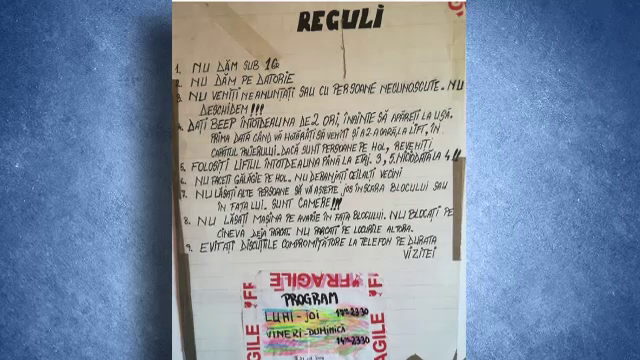 REGULI
1. NU DĂM SUB 1G
2. NU DĂM PE DATORIE
3. NU VENIȚI NEANUNȚAȚI SAU CU PERSOANE NECUNOSCUTE. NU
DESCHIDEM!!!
4. DAȚI BEEP ÎNTOTDEAUNA DE 2 ORI, ÎNAINTE SĂ APĂREȚI LA UȘĂ.
PRIMA DATĂ CÂND VĂ HOTĂRÂȚI SĂ VENIȚI ȘI A 2-A OARĂ LA LIFT, ÎN
CAPĂTUL PALIERULUI. DACĂ SUNT PERSOANE PE HOL, REVENIȚI
5. FOLOSIȚI LIFTUL ÎNTOTDEAUNA PÂNĂ LA ETAJ. 3, 5. NICIODATĂ LA 4!!
6. NU FACEȚI GĂLĂGIE PE HOL. NU DERANJAȚI CEILALȚI VECINI
7. NU LĂSAȚI ALTE PERSOANE SĂ VĂ AȘTEPTE JOS ÎN SCARA BLOCULUI SAU
ÎN FAȚA LUI. SUNT CAMERE!!!
8. NU LĂSAȚI MAȘINA PE AVARIE ÎN FAȚA BLOCULUI. NU BLOCAȚI PE
CINEVA DEJA PARCAT. NU PARCAȚI PE LOCURILE ALTORA.
9. EVITAȚI DISCUȚIILE COMPROMIȚĂTOARE LA TELEFON PE DURATA
VIZITEI
FRAGILE
PROGRAM
LUNI - JOI
VINERI - DUMINICĂ
FRAGILE
AGILE